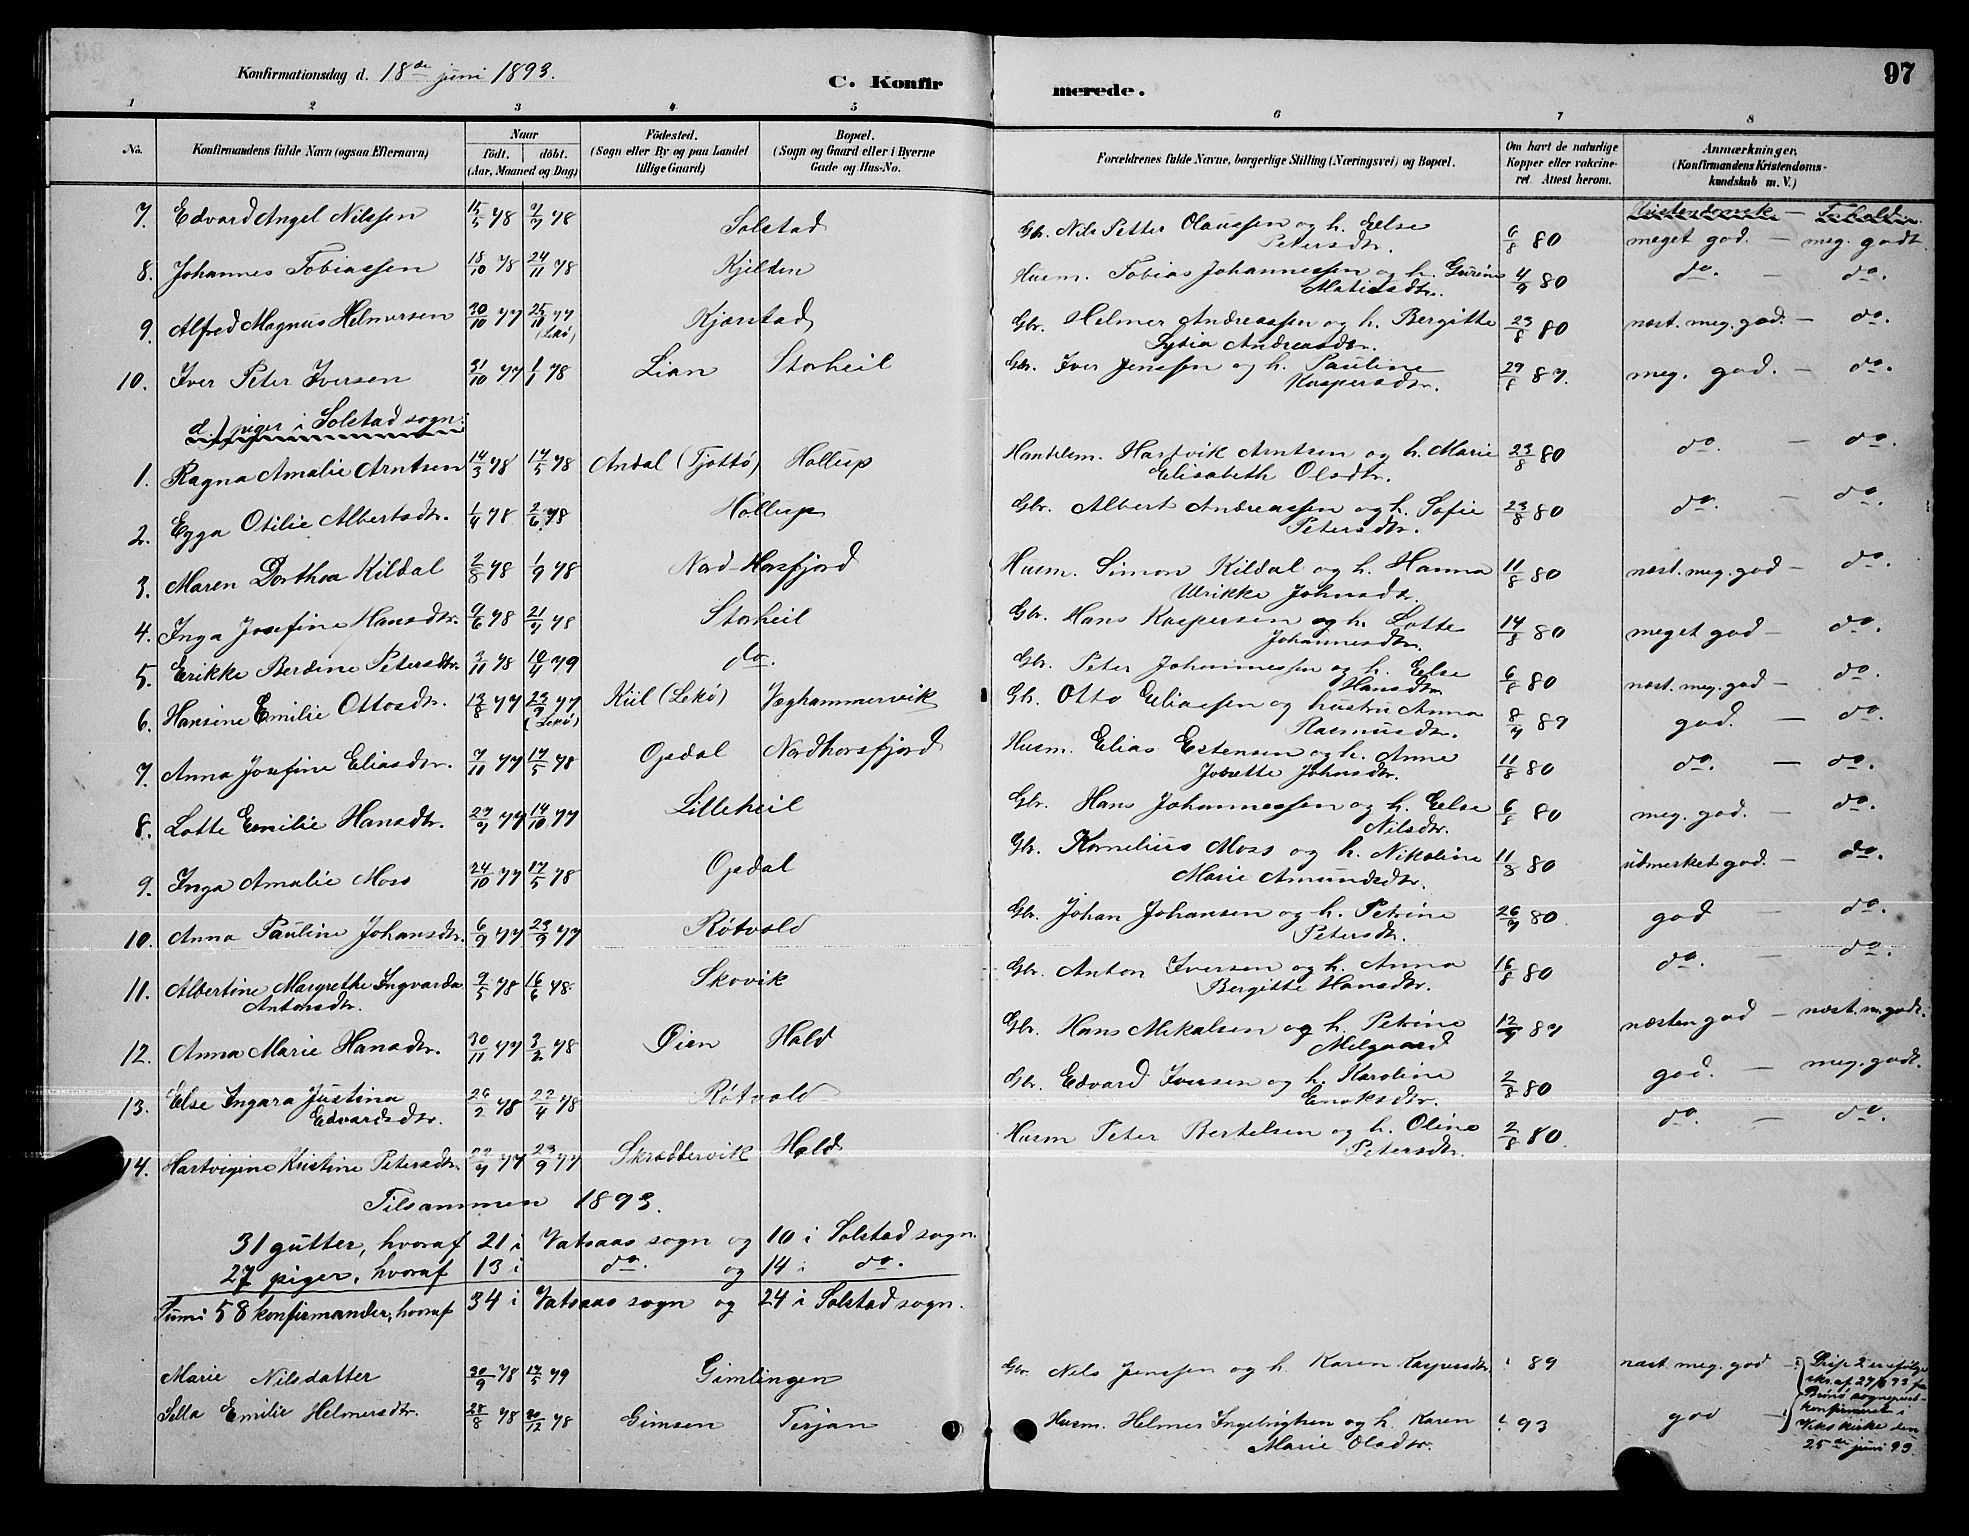 Konfirmationsdag d. 18de juni 1893.
C. Konfirmerede.
97
1 2 3 4 5 6 7 8
No. Konfirmandens fulde Navn (ogsaa Efternavn) Naar födt. döbt. (Aar, Maaned og Dag) Födested. (Sogn eller By og paa Landet tillige Gaard) Bopæl. (Sogn og Gaard eller i Byerne Gade og Hus-No. Forældrenes fulde Navne, borgerlige Stilling (Næringsvei) og Bopæl. Om havt de naturlige Kopper eller vakcineret. Attest herom. Anmærkninger. (Konfirmandens Kristendomskundskab m. V.)
Kristendomsk. – Forhold
7. Edvard Angel Nilssen 15/5 78 7/7 78 Solstad Gbr. Nils Petter Olaussen og h. Else Petersdtr. 6/8 80 meget god. – meg. godt
8. Johannes Tobiassen 18/10 78 24/11 78 Kjelden Husm. Tobias Johannessen og h. Gurine Matisdtr. 4/9 80 do. – do.
9. Alfred Magnus Helmersen 30/10 77 25/11 77 (Lekø) Kjærstad Gbr. Helmer Andreassen og h. Bergitte Sysia Andreasdtr. 23/8 80 næst. meg. god. – do.
10. Iver Peter Iversen 31/10 77 1/1 78 Lian Storheil Gbr. Iver Jenssen og h. Pauline Kaspersdtr. 29/8 87. meg. god. – do.
d.) piger i Solstad sogn:
1. Ragna Amalie Arntsen 14/3 78 17/5 78 Andal (Tjøttø) Hollup Handelsm. Hartvik Arntsen og h. Marie Elisabeth Olsdtr. 23/8 80 do. – do.
2. Egga Otilie Albertsdtr. 1/4 78 2/6 78 Hollup Gbr. Albert Andreassen og h. Sofie Petersdtr. 23/8 80 do. – do.
3. Maren Dorthea Kildal 2/8 78 1/9 78 Nord-Horsfjord Husm. Simon Kildal og h. Hanna Ulrikke Johnsdtr. 11/8 80 næst. meg. god – do.
4. Inga Josefine Hansdtr. 9/6 78 21/7 78 Storheil Gbr. Hans Kaspersen og h. Lotte Johannesdtr. 14/8 80 meget god – do.
5. Erikke Berdine Petersdtr. 3/11 78 10/4 79 do. Gbr. Peter Johannessen og h. Else Hansdtr. 6/8 80 næst. meg. god – do.
6. Hansine Emilie Ottosdtr. 13/8 77 23/9 77 (Lekø) Kiil (Lekø) Væghammervik Gbr. Otto Eliassen og hustru Anna Rasmusdtr. 8/7 89 god. – do.
7. Anna Josefine Eliasdtr. 7/11 77 17/5 78 Opdal Nordhorsfjord Husm. Elias Estensen og h. Anne Jobette Johnsdtr. 11/8 80 do. – do.
8. Lotte Emilie Hansdtr. 14/10 77 Lilleheil Gbr. Hans Johannessen og h. Else Nilsdtr. 6/8 80 meg. god. – do.
9. Inga Amalie Moss 24/10 77 17/5 78 Opdal Gbr. Kornelius Moss og h. Nikoline Marie Amundsdtr. 11/8 80 udmerket god. – do.
10. Anna Pauline Johansdtr. 6/9 77 23/9 77 Røtvold Gbr. Johan Johansen og h. Petrine Petersdtr. 26/7 80 god – do.
11. Albertine Margrethe Ingvarda Antonsdtr. 9/5 78 16/6 78 Skovik Gbr. Anton Iversen og h. Anna Bergitte Hansdtr. 16/8 80 do. – do.
12. Anna Marie Hansdtr. 30/11 77 3/2 78 Øien Hald Gbr. Hans Mikalsen og h. Petrine Melgaard 12/7 87 næsten god – næst. m. godt.
13. Else Ingara Justina Edvardsdtr. 26/2 78 22/4 78 Røtvold Gbr. Edvard Iversen og h. Karoline Enoksdtr. 2/8 80 god. – meg. godt.
14. Hartvigine Kristine Petersdtr. 22/7 77 23/9 77 Skreddervik Hald Husm Peter Bertelsen og h. Oline Petersdtr. 2/8 80. do. – do.
Tilsammen 1893.
31 gutter, hvoraf 21 i Vatsaas sogn og 10 i Solstad sogn.
27 piger, hvoraf 13 i do. og 14 i do.
Sum: 58 konfirmander, hvoraf 34 i Vatsaas sogn og 24 i Solstad sogn.
Marie Nilsdatter 30/9 78 17/5 79 Gimlingen Gbr Nils Jenssen og h. Karen Kaspersdtr. 89 næst. meg. god –
Sella Emilie Helmersdtr. 28/8 78 30/12 78 Gimsen Terjan Husm. Helmer Ingebrigtsen og h. Karen Marie Olsdtr. 93 god –
Disse 2 er ifølge skr. af 27/6 93 fra Brønø sogneprest konfirmeret i Viks kirke den 25de juni 93.